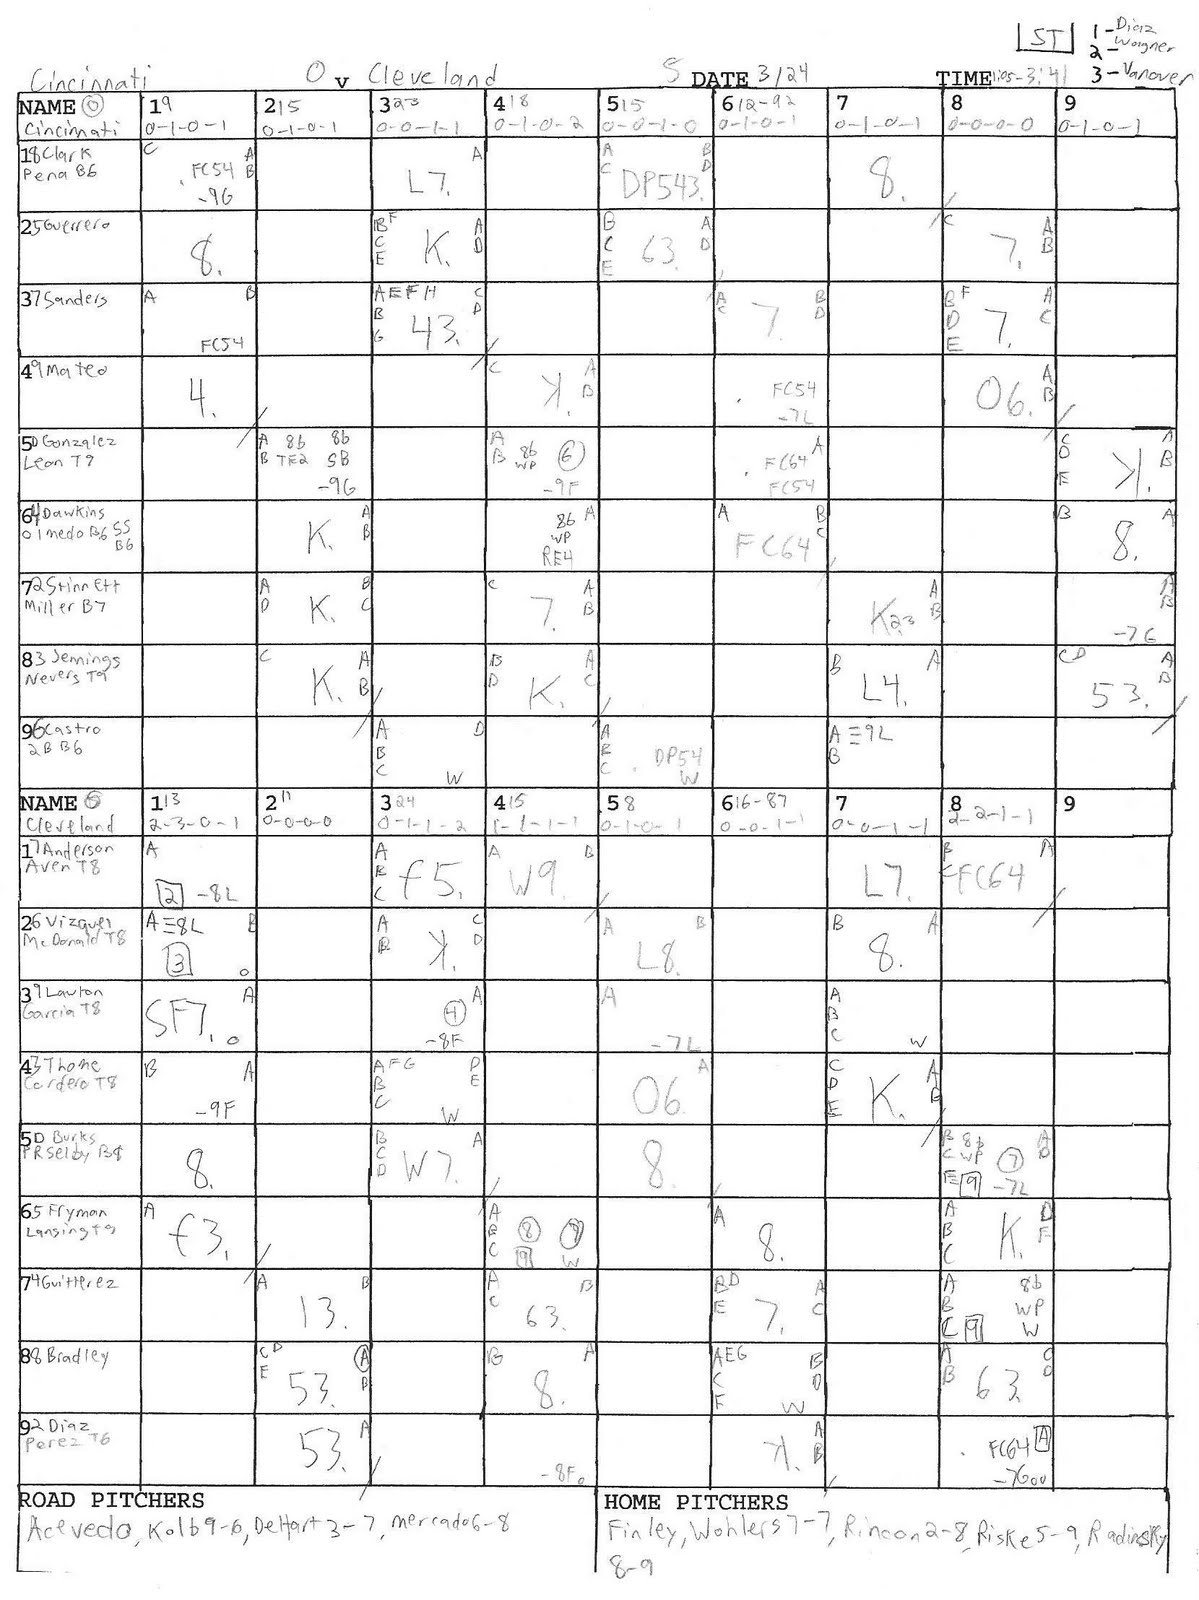 ST 1-Diaz
2-Wagner
3-Vanover
Cincinnati 0 v Cleveland 5 DATE 3/24 TIME 1:05-3:41
NAME 1 9 2 15 3 23 4 18 5 15 6 12-92 7 8 9
Cincinnati 0-1-0-1 0-1-0-1 0-0-1-1 0-1-0-2 0-0-1-0 0-1-0-1 0-1-0-1 0-0-0-0 0-1-0-1
1 8 Clark C A A A B
Pena B6 FC54 B L7. C DP543. D 8.
-9G
2 5 Guerrero B F A B A C A
8. C K. D C 63. D 7. B
E E
3 7 Sanders A B A E F H C A B B F A
B D C 7. D D 7. C
FC54 G 43. E
4 9 Mateo C A A
4. K. B FC54 06. B
-7L
5 D Gonzalez A 8b 8b A A C A
Leon T9 B TE2 SB B 8b WP 6 FC64 D K. B
-9G -9F FC54 E
6 4 Dawkins A 8b A A B B A
Olmedo B6 SS K. B WP FC64 C 8.
B6 RE4
7 2 Stinnett A B C A A A
Miller B7 D K. C 7. B K23 B B
-7G
8 3 Jennings C A B A B A C D A
Nevers T9 K. B D K. C L4. 53. B
9 6 Castro A D A A ≡9L
2B B6 B B DP54 B
C W C W
NAME 1 13 2 11 3 24 4 15 5 8 6 16-87 7 8 9
Cleveland 2-3-0-1 0-0-0-0 0-1-1-2 1-1-1-1 0-1-0-1 0-0-1-1 0-0-1-1 2-2-1-1
1 7 Anderson A A A B B A
Aven T8 B f5. W9. L7. FC64
2 -8L C
2 6 Vizquel A ≡8L B A C A B B A
McDonald T8 3 B K. D L8. 8.
3 9 Lawton A A A A
Garcia T8 SF7. 4 B
-8F -7L C W
4 3 Thome B A A F G D A C A
Cordero T8 B E 06. D K. B
-9F C W E
5 D Burks B A B 8b A
PR Selby B8 8. C W7. 8. C WP 7 D
D E 9 -7L
6 5 Fryman A A A A D
Lansing T9 f3. 8 8. B K. F
C 9 W C
7 4 Guitterez A B A B B D A A 8b
13. C 63. E 7. C B WP
C 9 W
8 8 Bradley C D A B A A E G B A C
E 53. B 8. C D B 63. D
F W
9 2 Diaz A A A
Perez T6 53. K. B FC64
-8F -7G
ROAD PITCHERS HOME PITCHERS
Acevedo, Kolb 9-6, DeHart 3-7, Mercado 6-8
Finley, Wohlers 7-7, Rincon 2-8, Riske 5-9, Radinsky
8-9